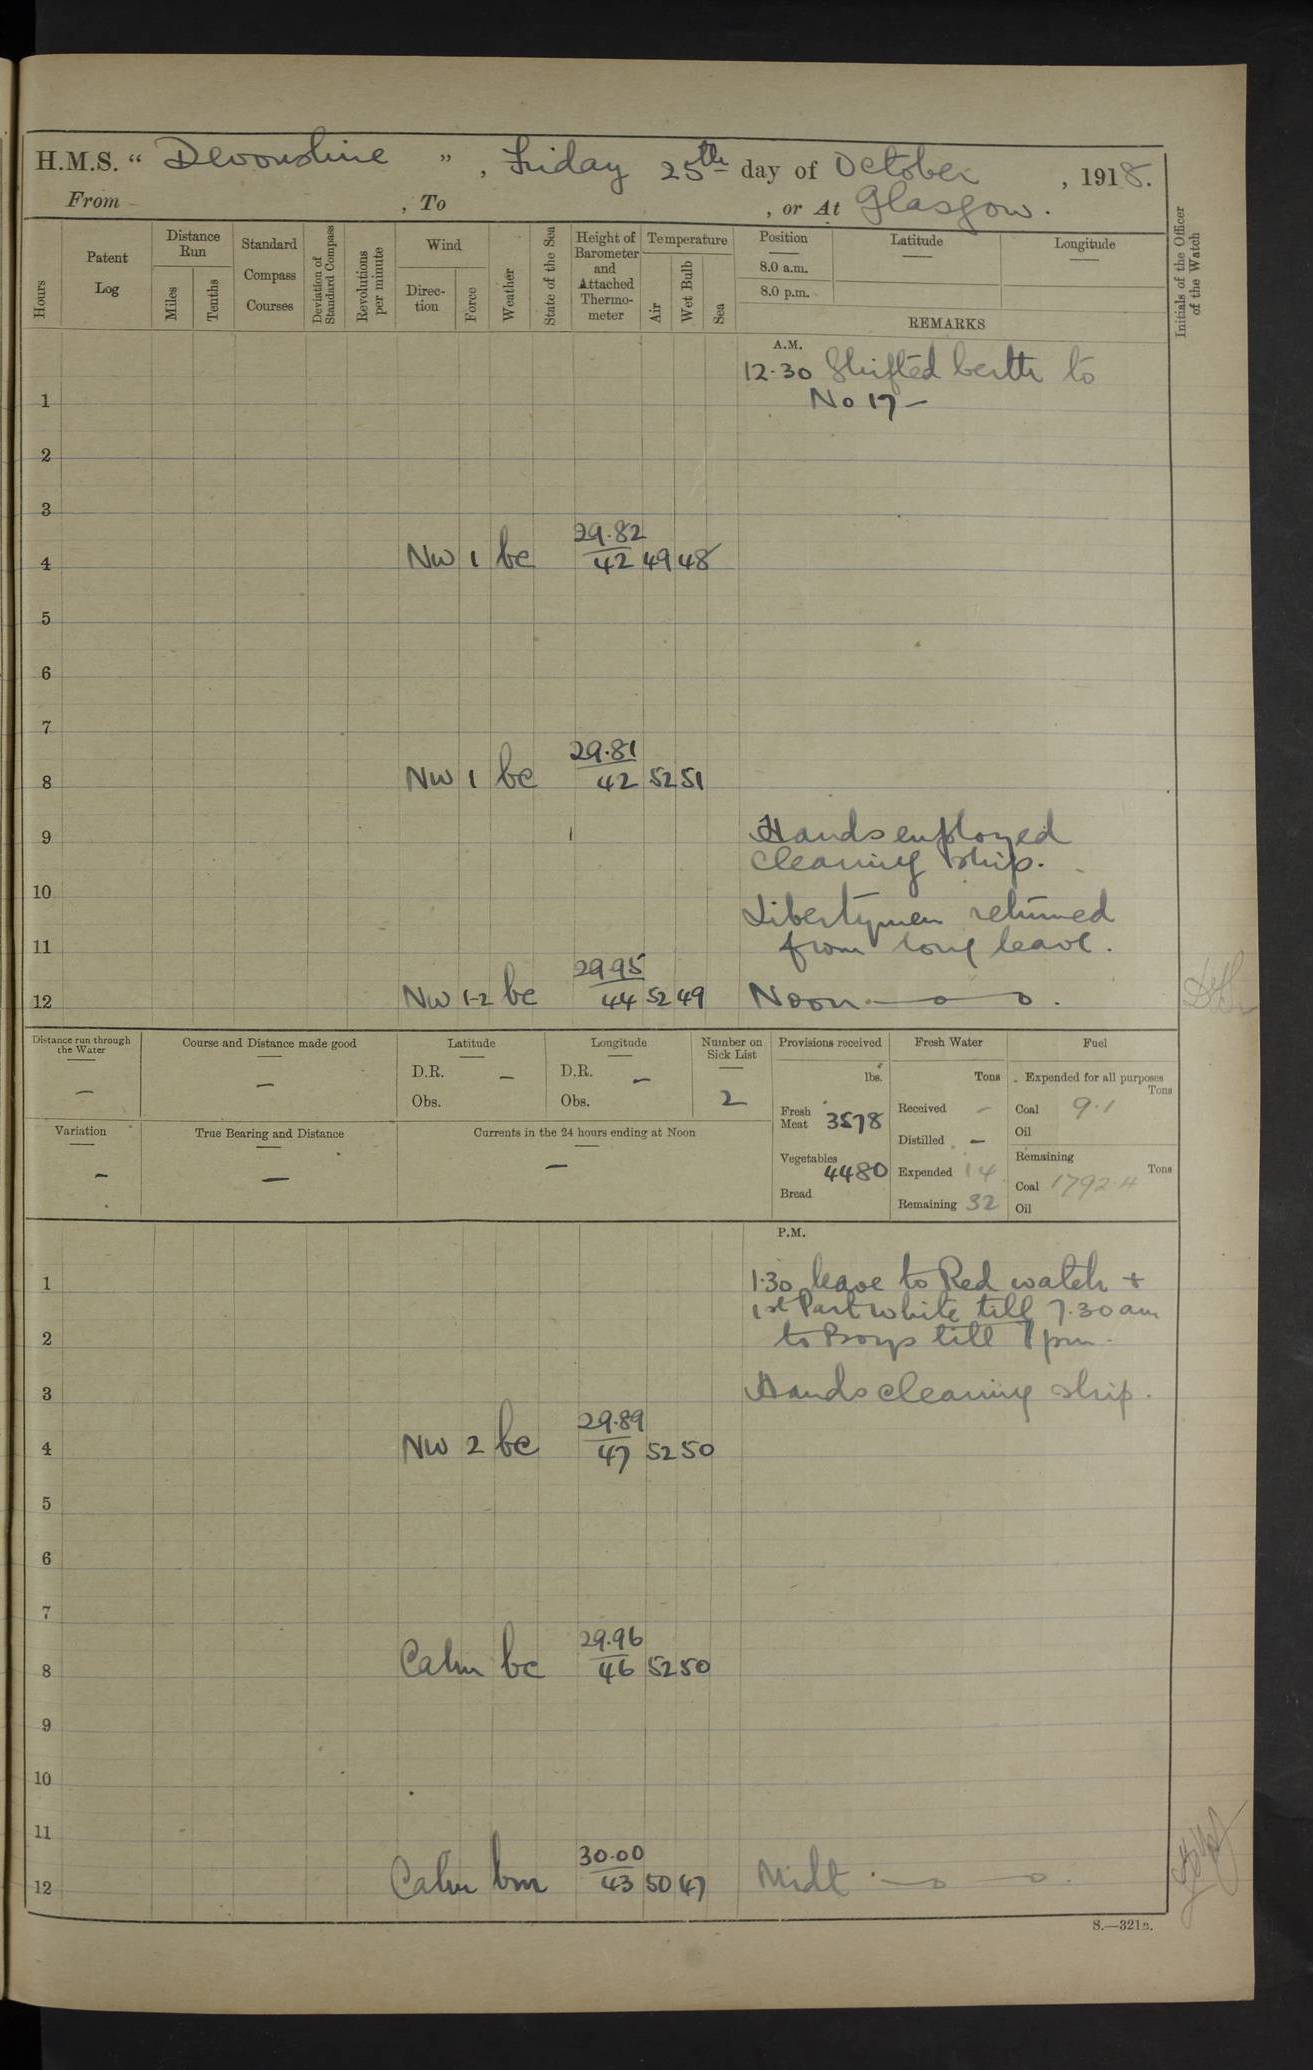 H.M.S. “ Devonshire ” , Friday 25th day of October , 1918.
From , To , or At Glasgow.
Hours
Patent Log
Distance Run
Miles
Tenths
Standard Compass Courses
Deviation of Standard Compass
Revolutions per minute
Wind
Direction
Force
Weather
State of the Sea
Height of Barometer and Attached Thermometer
Temperature
Air
Wet Bulb
Sea
Position
8.0 a.m.
8.0 p.m.
Latitude
Longitude
REMARKS
Initials of the Officer of the Watch
A.M.
12.30 Shifted berth to
1 No 17 –
2
3
4 NW 1 bc 29.82 42 49 48
5
6
7
8 NW 1 bc 29.81 42 52 51
9 Hands employed
cleaning ship.
10
Libertymen returned
11 from long leave.
12 NW 1-2 bc 29.95 44 52 49 Noon
Distance run through the Water –
Course and Distance made good –
Latitude
D.R. –
Obs.
Longitude
D.R. –
Obs.
Number on Sick List
2
Provisions received
lbs.
Fresh Meat 3578
Vegetables 4480
Bread
Fresh Water
Tons
Received –
Distilled –
Expended 14
Remaining 32
Fuel
Expended for all purposes
Tons
Coal 9.1
Oil
Remaining
Tons
Coal 1792.4
Oil
Variation –
True Bearing and Distance –
Currents in the 24 hours ending at Noon –
P.M.
1 1.30 leave to Red watch +
1st Part white till 7.30 am
2 to Boys till 7 pm.
3 Hands cleaning ship.
4 NW 2 bc 29.89 47 52 50
5
6
7
8 Calm bc 29.96 46 52 50
9
10
11
12 Calm bm 30.00 43 50 47 Midt
S.—321B.